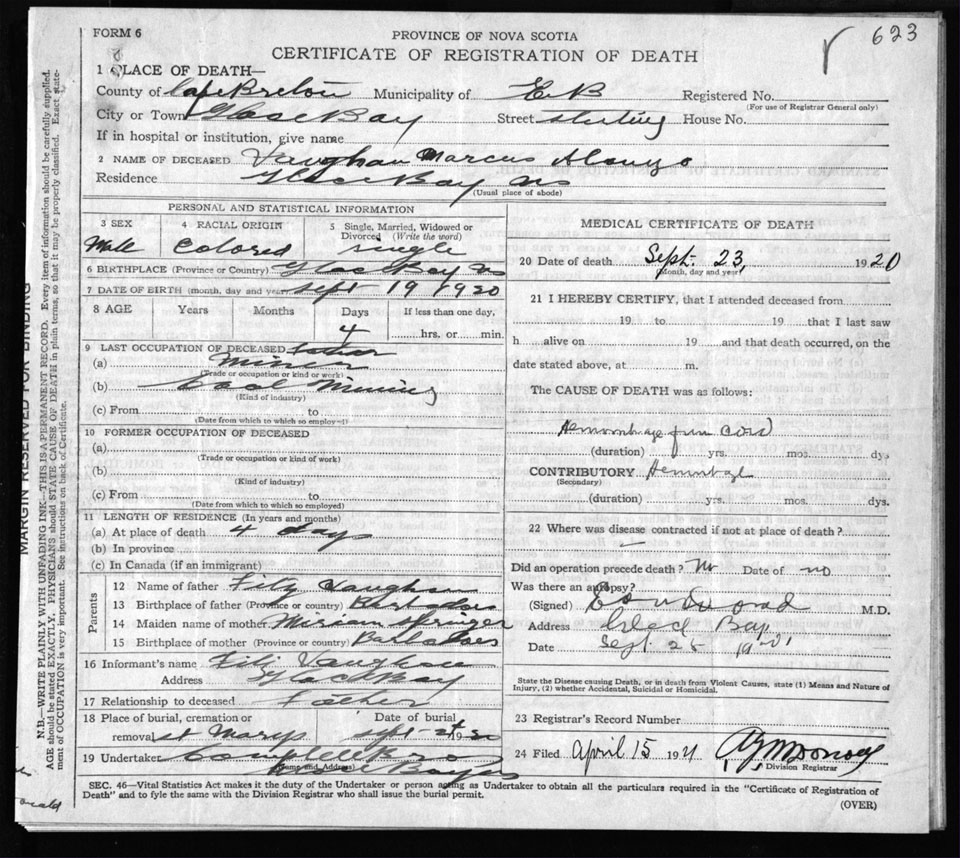 FORM 6
PROVINCE OF NOVA SCOTIA
623
CERTIFICATE OF REGISTRATION OF DEATH
1 PLACE OF DEATH—
County of Cape Breton Municipality of C B Registered No.
(For use of Registrar General only)
City or Town Glace Bay Street Sterling House No.
If in hospital or institution, give name
2 NAME OF DECEASED Vaughan Marcus Alonzo
Residence Glace Bay NS
(Usual place of abode)
PERSONAL AND STATISTICAL INFORMATION
3 SEX Male
4 RACIAL ORIGIN Colored
5 Single, Married, Widowed or Divorced (Write the word) single
6 BIRTHPLACE (Province or Country) Glace Bay NS
7 DATE OF BIRTH (month, day and year) Sept 19 1920
8 AGE Years Months Days If less than one day,
4 hrs. or min.
9 LAST OCCUPATION OF DECEASED Father
(a) Miner
(Trade or occupation or kind or work)
(b) Coal Mining
(Kind of industry)
(c) From to
(Date from which to which so employed)
10 FORMER OCCUPATION OF DECEASED
(a)
(Trade or occupation or kind of work)
(b)
(Kind of industry)
(c) From to
(Date from which to which so employed)
11 LENGTH OF RESIDENCE (In years and months)
(a) At place of death 4 days
(b) In province
(c) In Canada (if an immigrant)
Parents
12 Name of father Fitz Vaughan
13 Birthplace of father (Province or country) Barbados
14 Maiden name of mother Miriam Springer
15 Birthplace of mother (Province or country) Barbados
16 Informant's name Fitz Vaughan
Address Glace Bay
17 Relationship to deceased Father
18 Place of burial, cremation or Date of burial
removal St Marys Sept 1920
19 Undertaker
(Name and Address) Glace Bay NS
MEDICAL CERTIFICATE OF DEATH
20 Date of death Sept. 23, 1920
(Month, day and year)
21 I HEREBY CERTIFY, that I attended deceased from
19 to 19 that I last saw
h alive on 19 and that death occurred, on the
date stated above, at m.
The CAUSE OF DEATH was as follows:
Hemorrhage from Cord
(duration) yrs. mos. dys
CONTRIBUTORY Hemorrhage
(Secondary)
(duration) yrs. mos. dys.
22 Where was disease contracted if not at place of death?
Did an operation precede death? No Date of no
Was there an autopsy?
(Signed) M.D.
Address Glace Bay
Date Sept. 25
State the Disease causing Death, or in death from Violent Causes, state (1) Means and Nature of
Injury, (2) whether Accidental, Suicidal or Homicidal.
23 Registrar's Record Number
24 Filed April 15 1921
Division Registrar
SEC. 46—Vital Statistics Act makes it the duty of the Undertaker or person acting as Undertaker to obtain all the particulars required in the "Certificate of Registration of
Death" and to fyle the same with the Division Registrar who shall issue the burial permit.
(OVER)
MARGIN RESERVED FOR BINDING
N.B.—WRITE PLAINLY WITH UNFADING INK—THIS IS A PERMANENT RECORD. Every item of information should be carefully supplied.
AGE should be stated EXACTLY. PHYSICIANS should STATE CAUSE OF DEATH in plain terms, so that it may be properly classified. Exact state-
ment of OCCUPATION is very important. See instructions on back of Certificate.